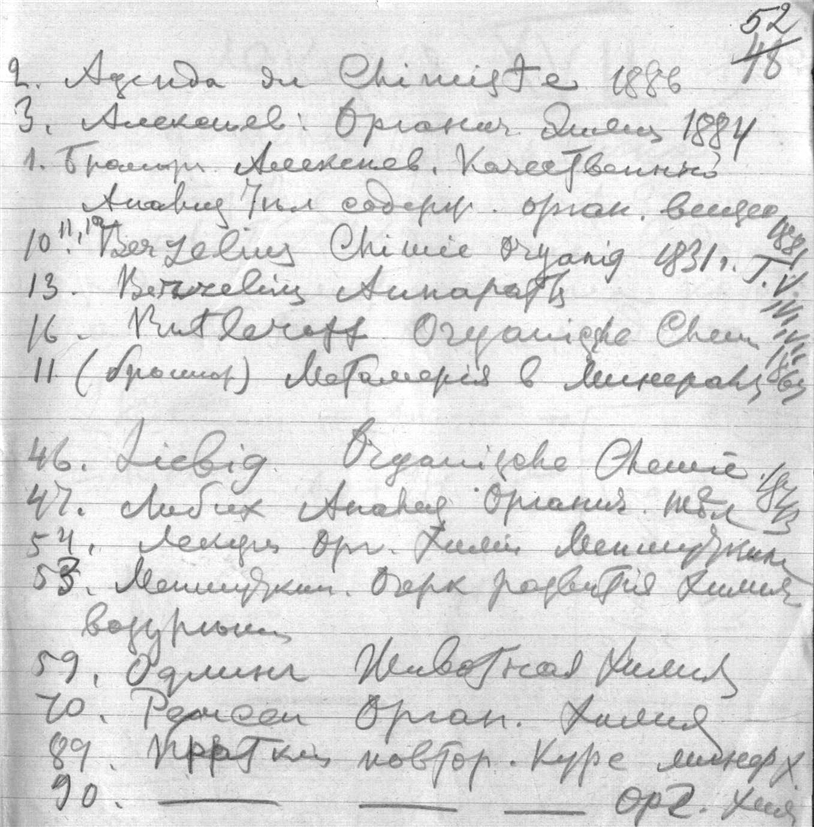 52
48
2. Agenda du Chimiste 1886
3. Алексеев: Органич. Химия 1884
1. Брошюр. Алексеев. Качественный
Анализ содерж. орган. вещес
1881
10, 11, 12 Berzelius Chimie Organiq 1831 г. T. V.
13. Berzelius Аппараты
16. Butleroff Organische Chem
11 (брошюр) Метамерія в Минерал
46. Liebig Organische Chemie
47. Либих Анализ Органич. тѣл
54. Лекции Орг. Химіи Меншуткин
53. Меншуткин. Очерк развитія Химич
воззрений
59. Одлинг Животная Химия
70. Ремсен Орган. Химия
89. Краткий повтор. Курс минер Х
90. — — — орг. хим